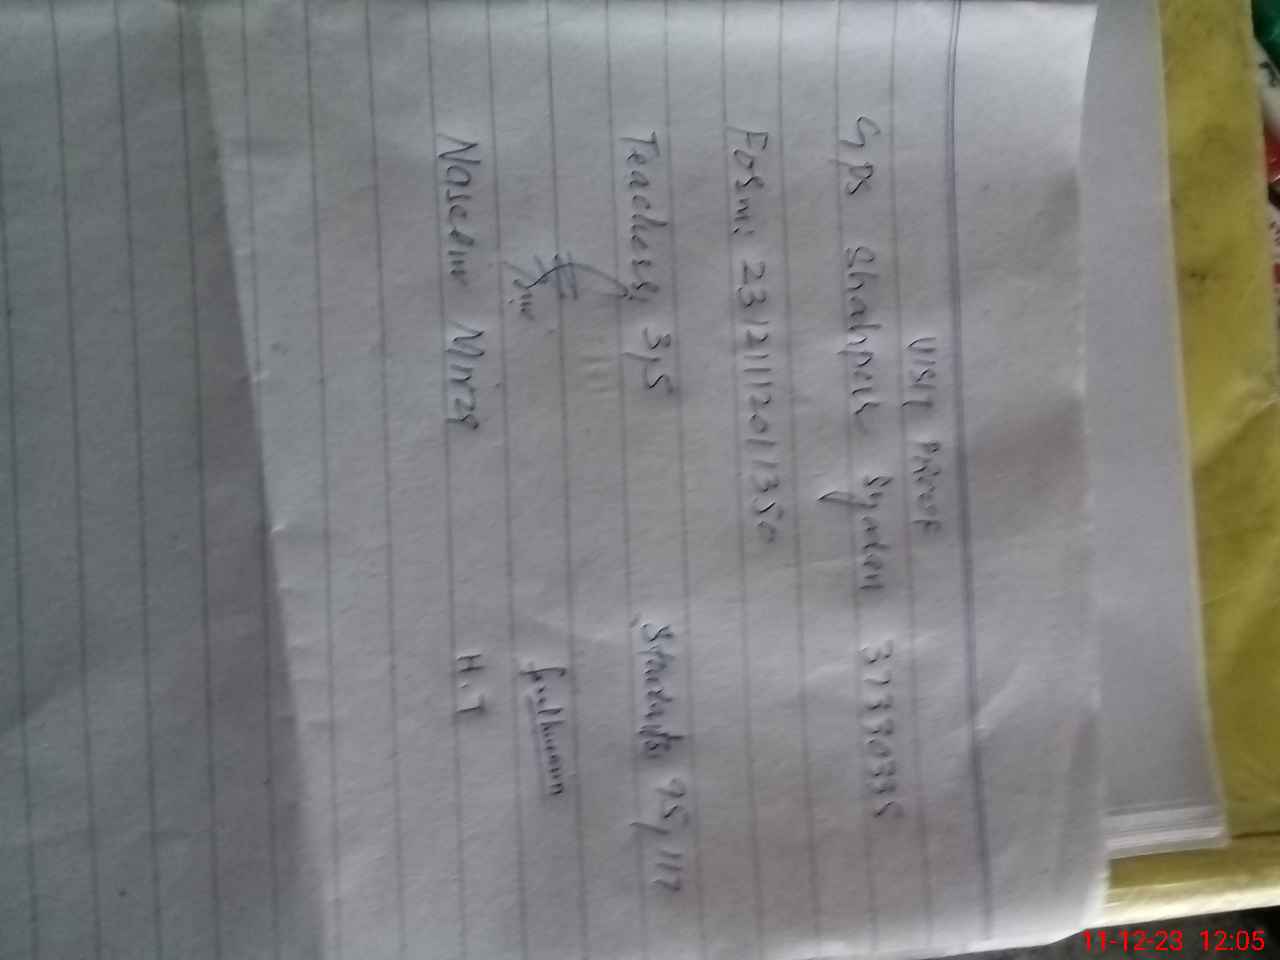 VISIT PROOF
GPS Shahpur Syedan 37330335
EOSM: 231211120111350
Teachers, 3/5 Students 95/117
Naseem Mirza H.T
11-12-23 12:05